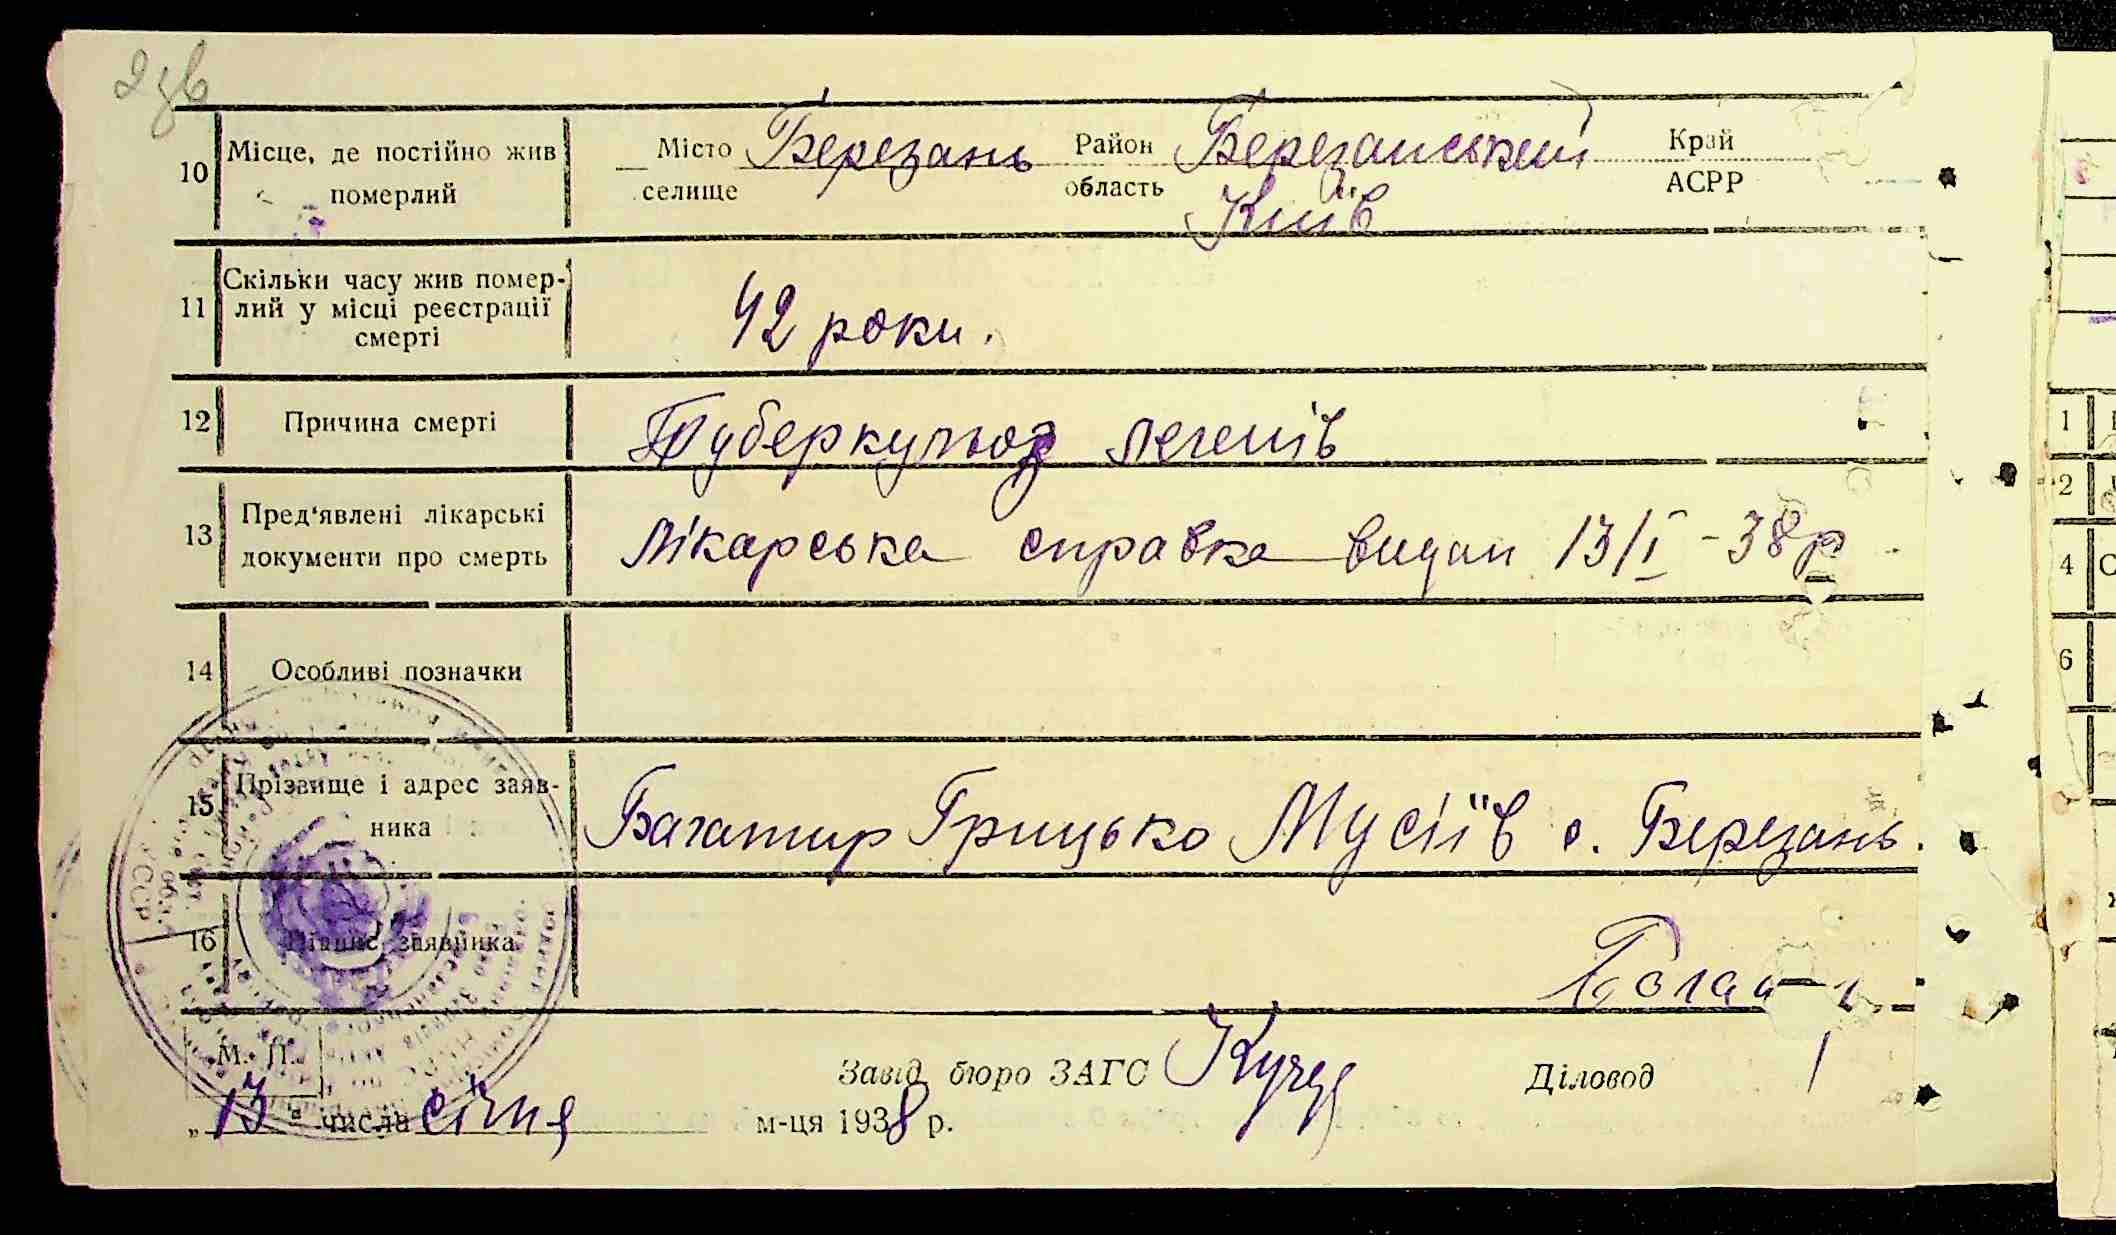 2 зв
10 Місце, де постійно жив Місто Березань Район Березанський Край
померлий селище область Київ АСРР
11 Скільки часу жив помер-
лий у місці реєстрації 42 роки.
смерті
12 Причина смерті Туберкульоз легенів
13 Пред'явлені лікарські
документи про смерть Лікарська справка видан 13/I - 38 р
14 Особливі позначки
15 Прізвище і адрес заяв-
ника Багатир Грицько Мусіїв с. Березань.
16 Підпис заявника
М. П.
Завід. бюро ЗАГС Діловод
„13" числа січня м-ця 1938 р.
УССР
1
2
4
6